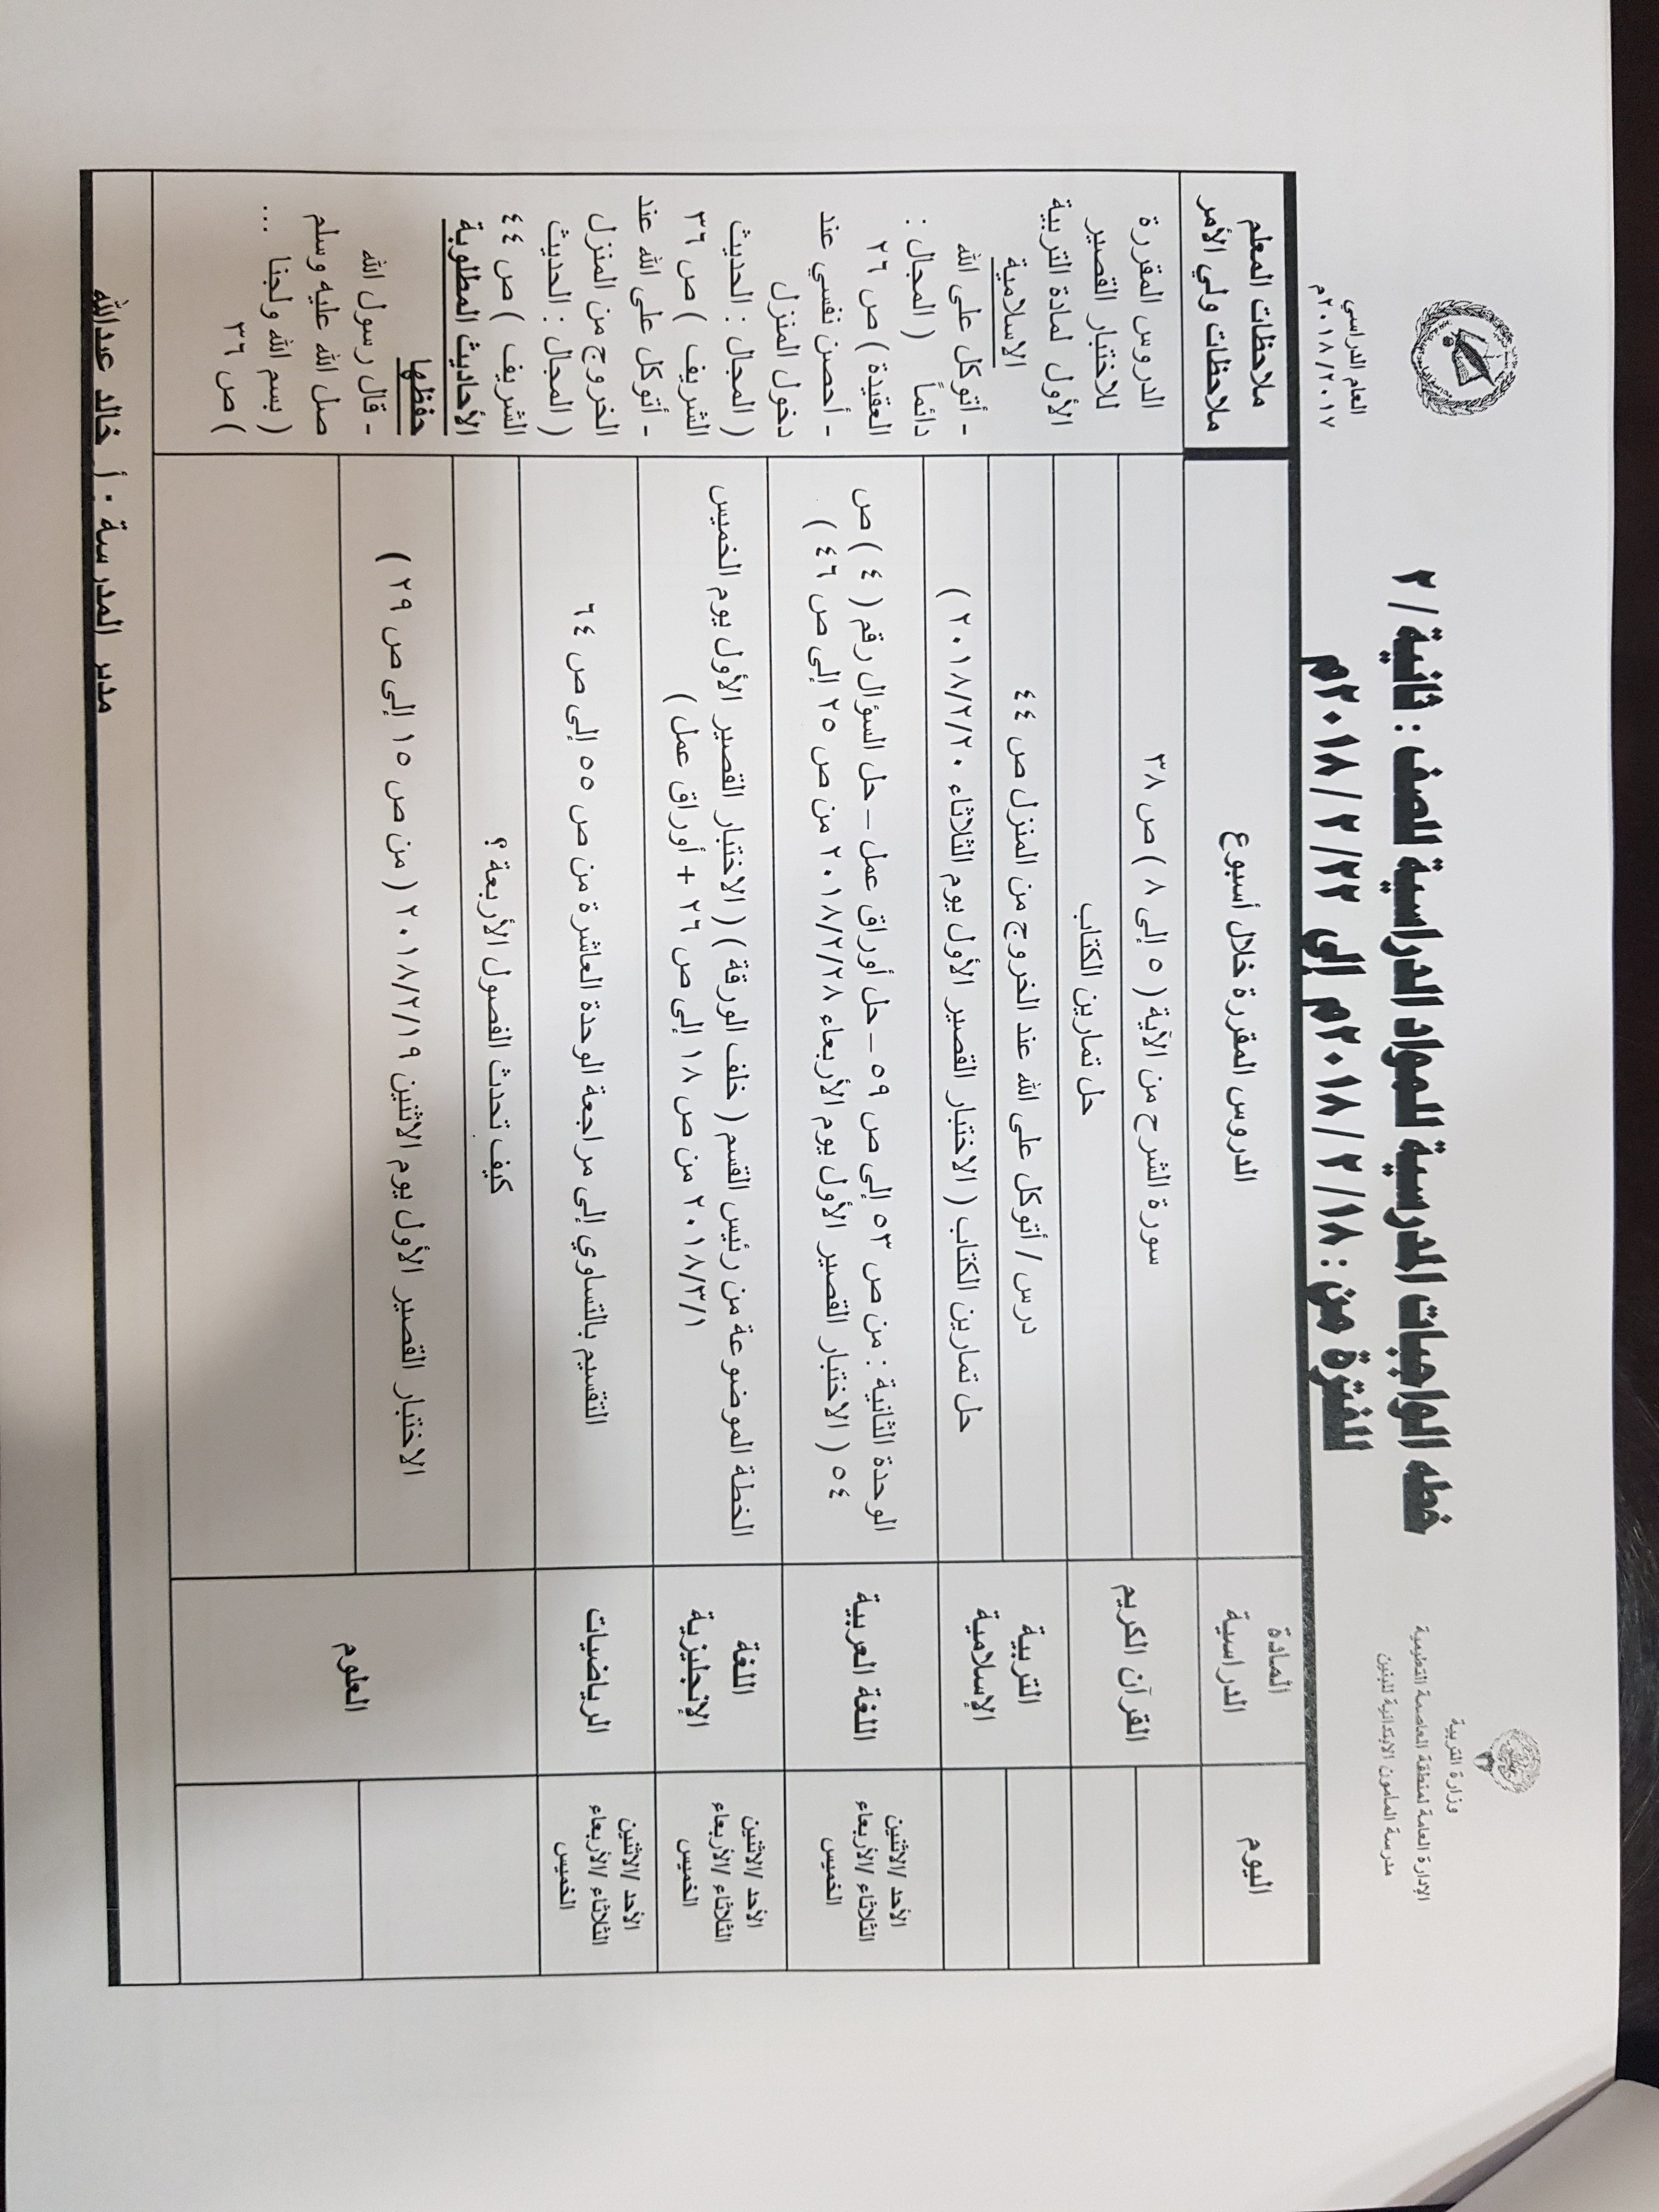 وزارة التربية
الإدارة العامة لمنطقة العاصمة التعليمية
مدرسة المأمون الابتدائية للبنين
خطه الواجبات المدرسية للمواد الدراسية للصف : ثانية / ٢
للفترة من : ١٨/ ٢ /٢٠١٨م إلى ٢٢/ ٢ /٢٠١٨م
العام الدراسي
٢٠١٨/٢٠١٧م
اليوم
المادة
الدراسية
الدروس المقررة خلال أسبوع
ملاحظات المعلم
ملاحظات ولي الأمر
القرآن الكريم
سورة الشرح من الآية ( ٥ إلى ٨ ) ص ٣٨
حل تمارين الكتاب
التربية
الإسلامية
درس / أتوكل على الله عند الخروج من المنزل ص ٤٤
حل تمارين الكتاب ( الاختبار القصير الأول يوم الثلاثاء ٢٠١٨/٢/٢٠ )
الأحد /الاثنين
الثلاثاء /الأربعاء
الخميس
اللغة العربية
الوحدة الثانية : من ص ٥٣ إلى ص ٥٩ – حل أوراق عمل – حل السؤال رقم ( ٤ ) ص
٥٤ ( الاختبار القصير الأول يوم الأربعاء ٢٠١٨/٢/٢٨ من ص ٢٥ إلى ص ٤٦ )
الأحد /الاثنين
الثلاثاء /الأربعاء
الخميس
اللغة
الإنجليزية
الخطة الموضوعة من رئيس القسم ( خلف الورقة ) ( الاختبار القصير الأول يوم الخميس
٢٠١٨/٣/١ من ص ١٨ إلى ص ٢٦ + أوراق عمل )
الأحد /الاثنين
الثلاثاء /الأربعاء
الخميس
الرياضيات
التقسيم بالتساوي إلى مراجعة الوحدة العاشرة من ص ٥٥ إلى ص ٦٤
العلوم
كيف تحدث الفصول الأربعة ؟
الاختبار القصير الأول يوم الاثنين ٢٠١٨/٢/١٩ ( من ص ١٥ إلى ص ٢٩ )
الدروس المقررة
للاختبار القصير
الأول لمادة التربية
الاسلامية
- أتوكل على الله
دائماً ( المجال :
العقيدة ) ص ٢٦
- أحصن نفسي عند
دخول المنزل
( المجال : الحديث
الشريف ) ص ٣٦
- أتوكل على الله عند
الخروج من المنزل
( المجال : الحديث
الشريف ) ص ٤٤
الأحاديث المطلوبة
حفظها
- قال رسول الله
صل الله عليه وسلم
( بسم الله ولجنا ...
) ص ٣٦
مدير المدرسة : أ. خالد عبدالله